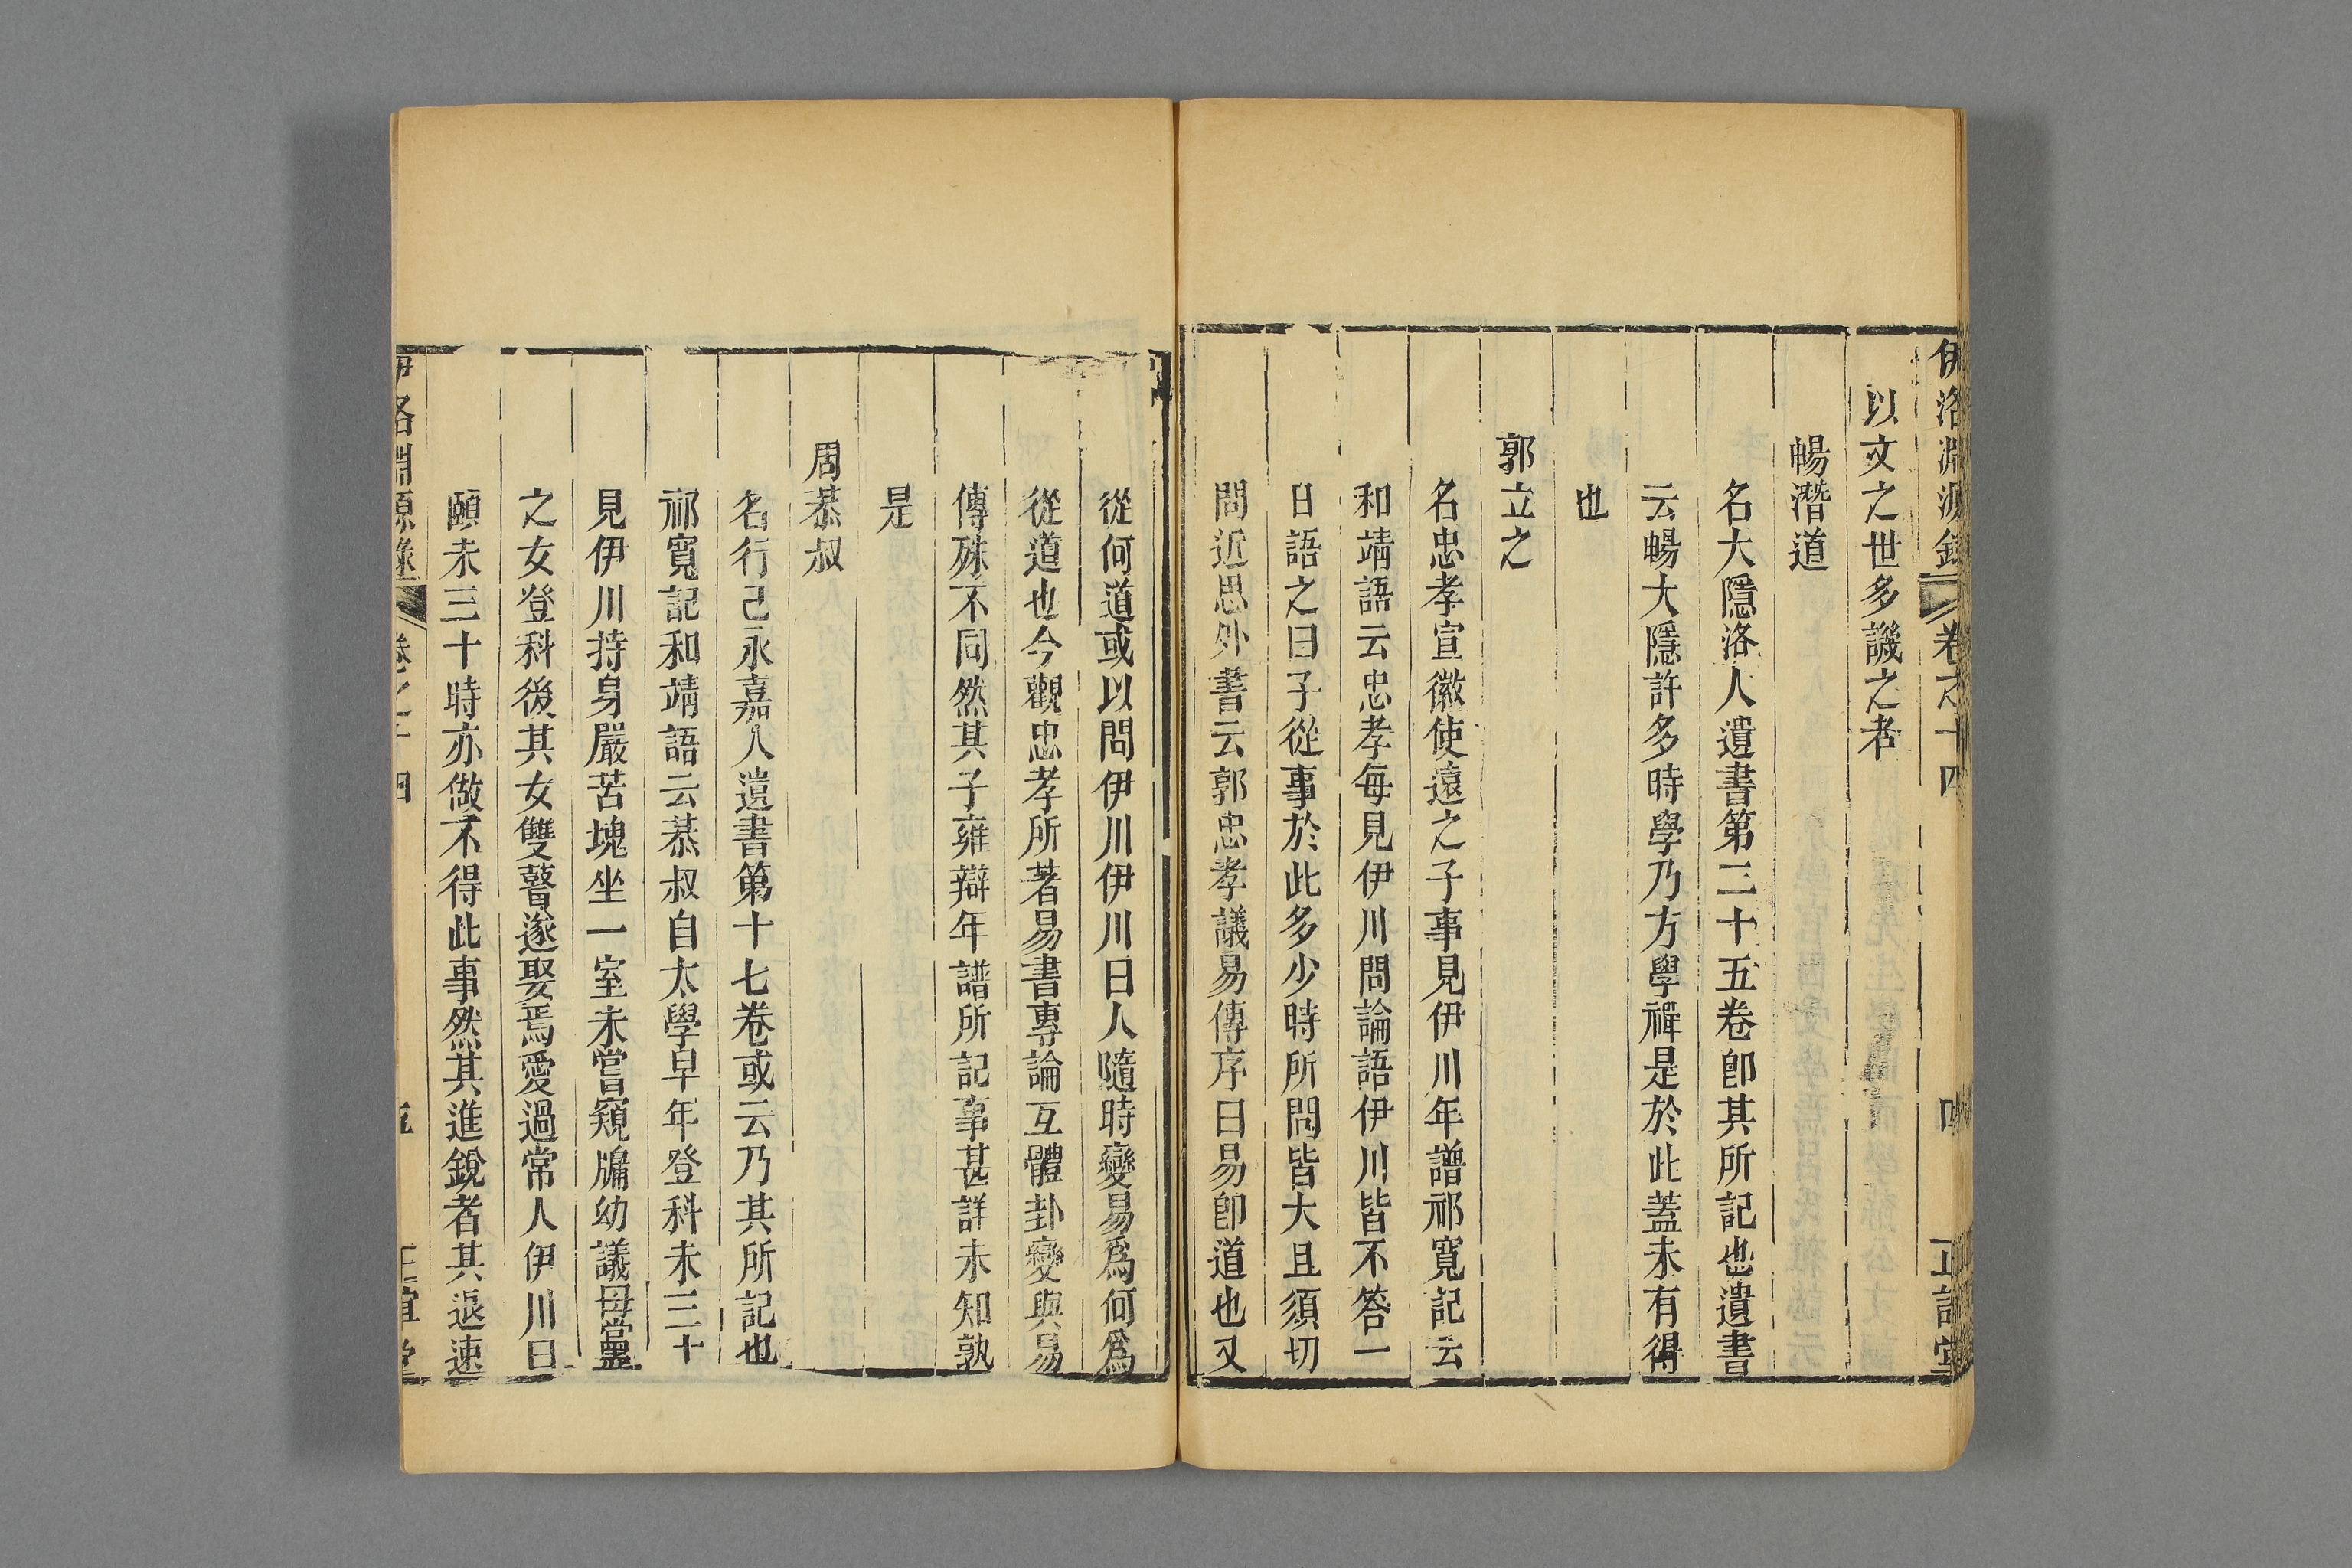 伊洛淵源錄 卷之十四 四 正誼堂
以文之世多譏之者
暢潛道
名大隱洛人遺書第二十五卷卽其所記也遺書
云暢大隱許多時學乃方學禪是於此蓋未有得
也
郭立之
名忠孝宣徽使遠之子事見伊川年譜祁寬記云
和靖語云忠孝每見伊川問論語伊川皆不答一
日語之曰子從事於此多少時所問皆大且須切
問近思外書云郭忠孝議易傳序曰易卽道也又
從何道或以問伊川伊川曰人隨時變易爲何爲
從道也今觀忠孝所著易書專論互體卦變與易
傳殊不同然其子雍辯年譜所記事甚詳未知孰
是
周恭叔
名行己永嘉人遺書第十七卷或云乃其所記也
祁寬記和靖語云恭叔自太學早年登科未三十
見伊川持身嚴苦塊坐一室未嘗窺牖幼議母黨
之女登科後其女雙瞽遂娶焉愛過常人伊川曰
頤未三十時亦做不得此事然其進銳者其退速
伊洛淵源錄 卷之十四 五 正誼堂